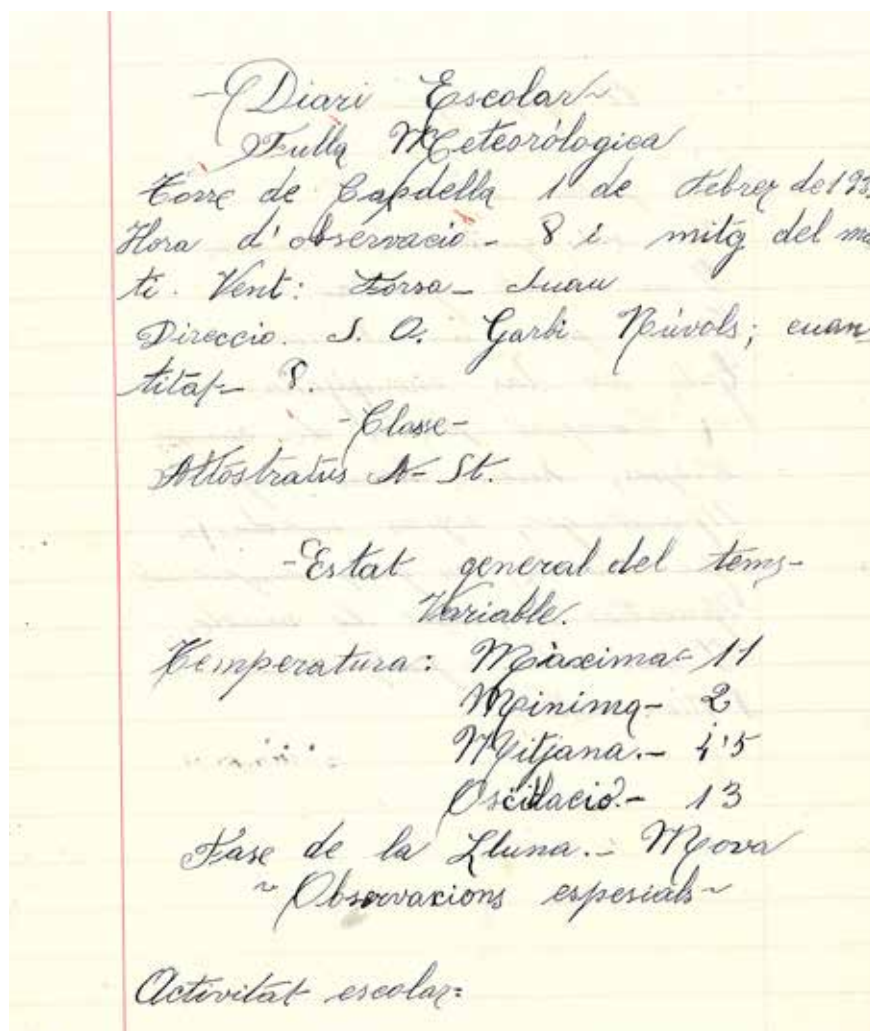 - Diari Escolar ~
Fulla Meteorólogica
Torre de Capdella 1 de Febrer de 193
Hora d'observació - 8 i mitg del ma
tí. Vent: Forsa - Suau
Direcció. S. O. Garbi Núvols; cuan
titat - 8.
- Classe -
Altostratus A - St.
- Estat general del tems -
Variable.
Temperatura: Màxima - 11
Mínima - 2
Mitjana. - 4'5
Oscilació. - 13
Fase de la Lluna. - Nova
~ Observacions espesials ~
Activitat escolar: